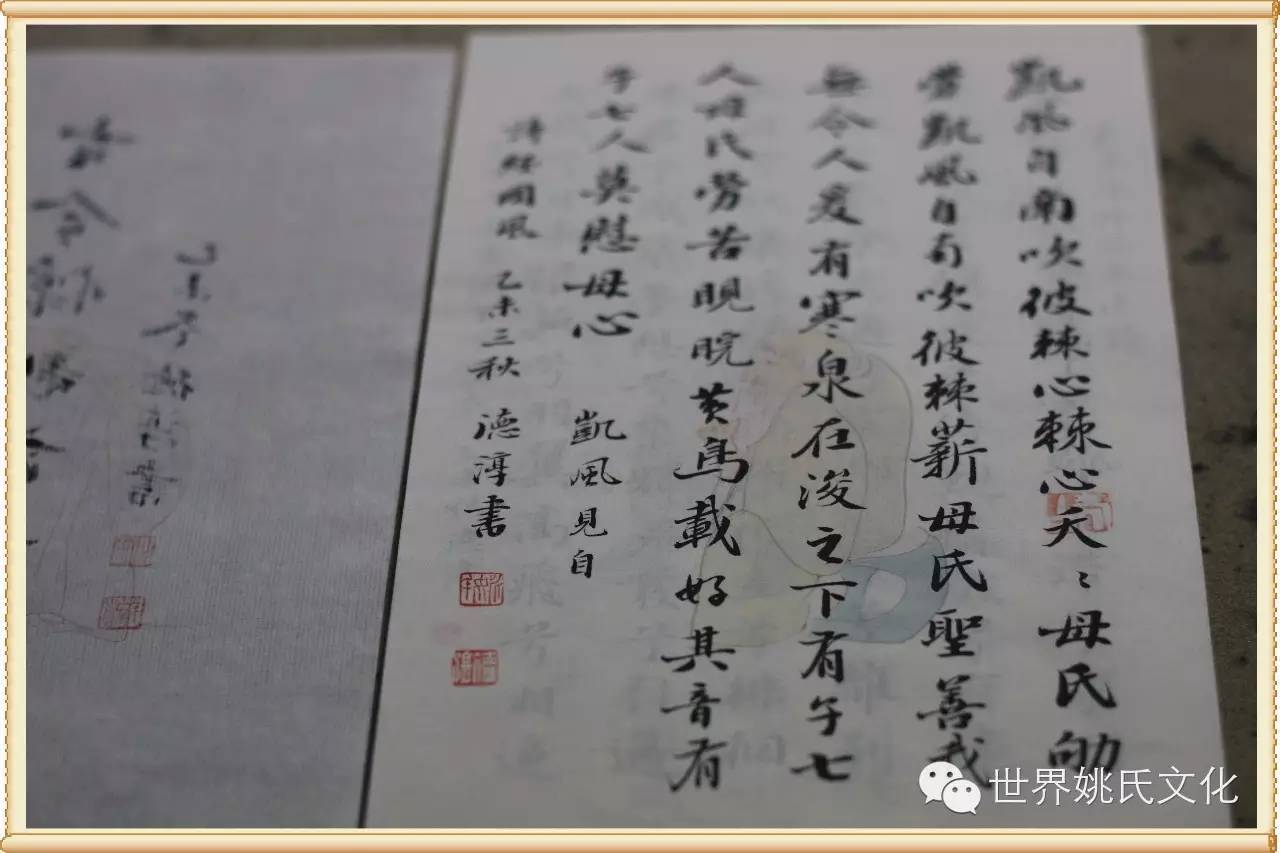 凱風自南吹彼棘心棘心夭〻母氏劬
勞凱風自南吹彼棘薪母氏聖善我
無令人爰有寒泉在浚之下有子七
人母氏勞苦睍睆黃鳥載好其音有
子七人莫慰母心 凱風見自
詩經國風 乙未三秋 德淳書
世界姚氏文化